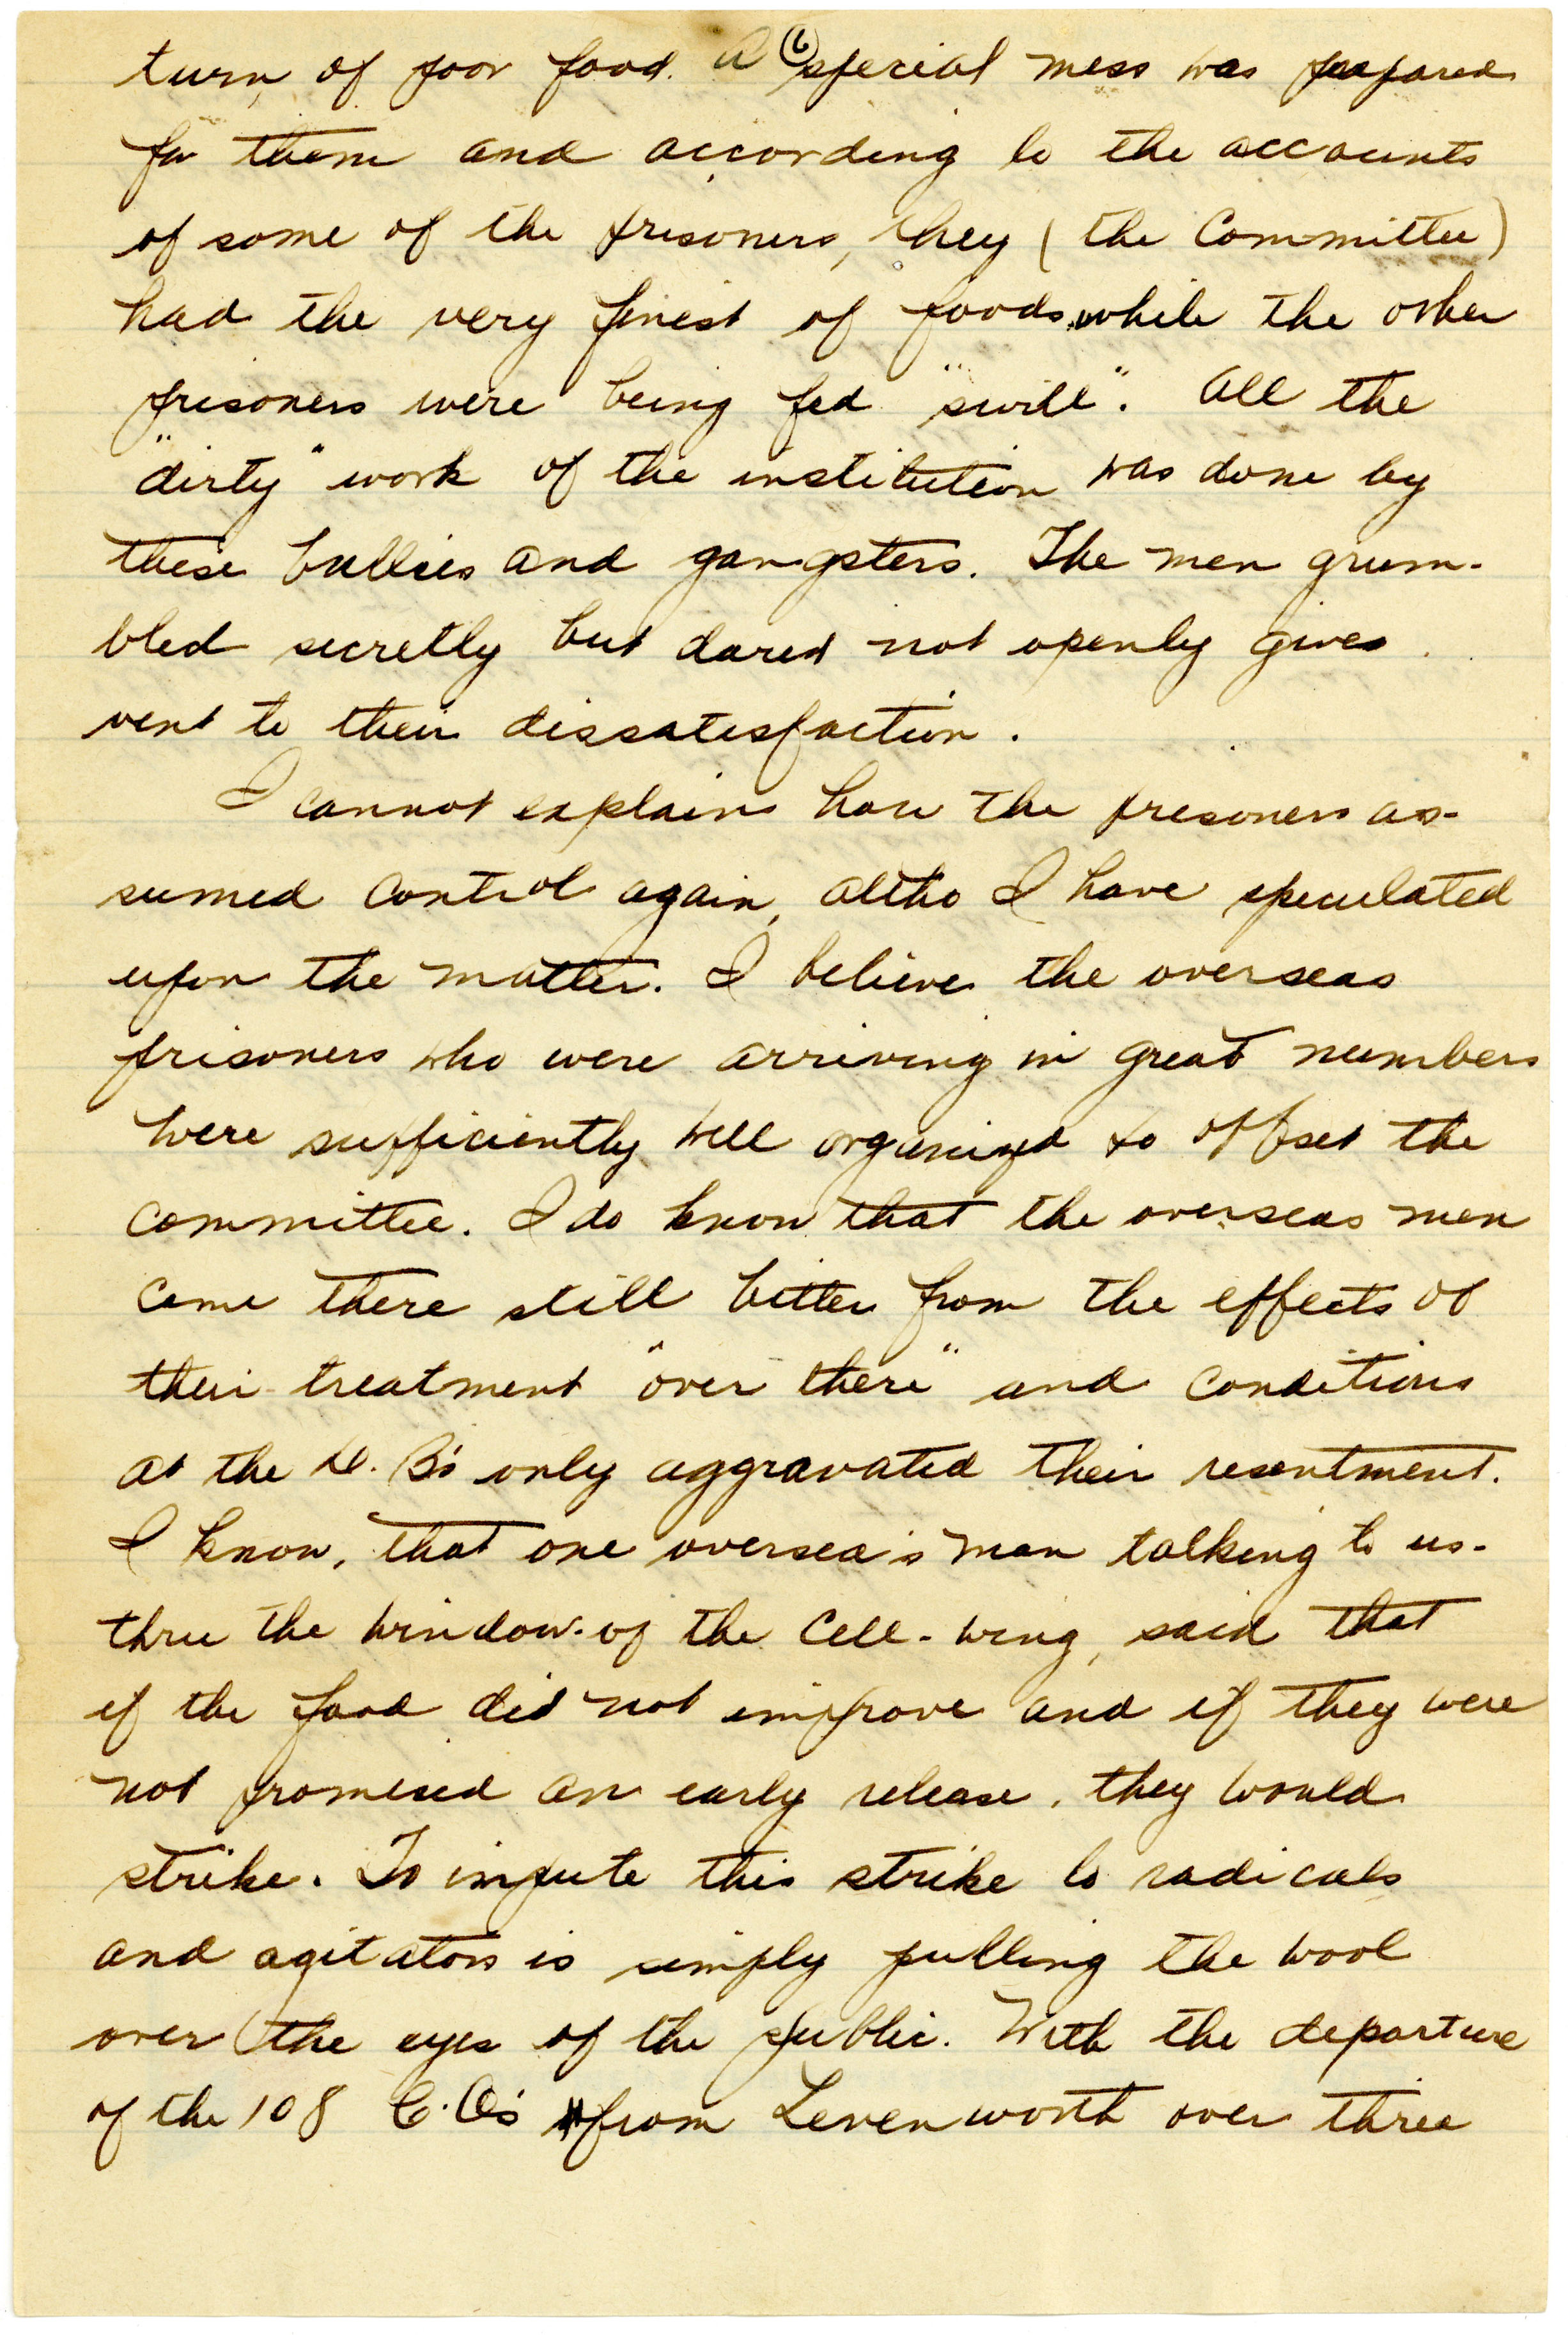 6
turn of poor food. A special mess was prepared
for them and according to the accounts
of some of the prisoners, they (the Committee)
had the very finest of foods while the other
prisoners were being fed "swill". All the
"dirty" work of the institution was done by
these bullies and gangsters. The men grum-
bled secretly but dared not openly give
vent to their dissatisfaction.
I cannot explain how the prisoners as-
sumed control again, altho I have speculated
upon the matter. I believe the overseas
prisoners who were arriving in great numbers
were sufficiently well organized to offset the
committee. I do know that the overseas men
came there still bitter from the effects of
their treatment "over there" and conditions
at the D. B's only aggravated their resentment.
I know, that one oversea's man talking to us
thru the window of the cell-wing, said that
if the food did not improve and if they were
not promised an early release, they would
strike. To impute this strike to radicals
and agitators is simply pulling the wool
over the eyes of the public. With the departure
of the 108 C.O's from Levenworth over three